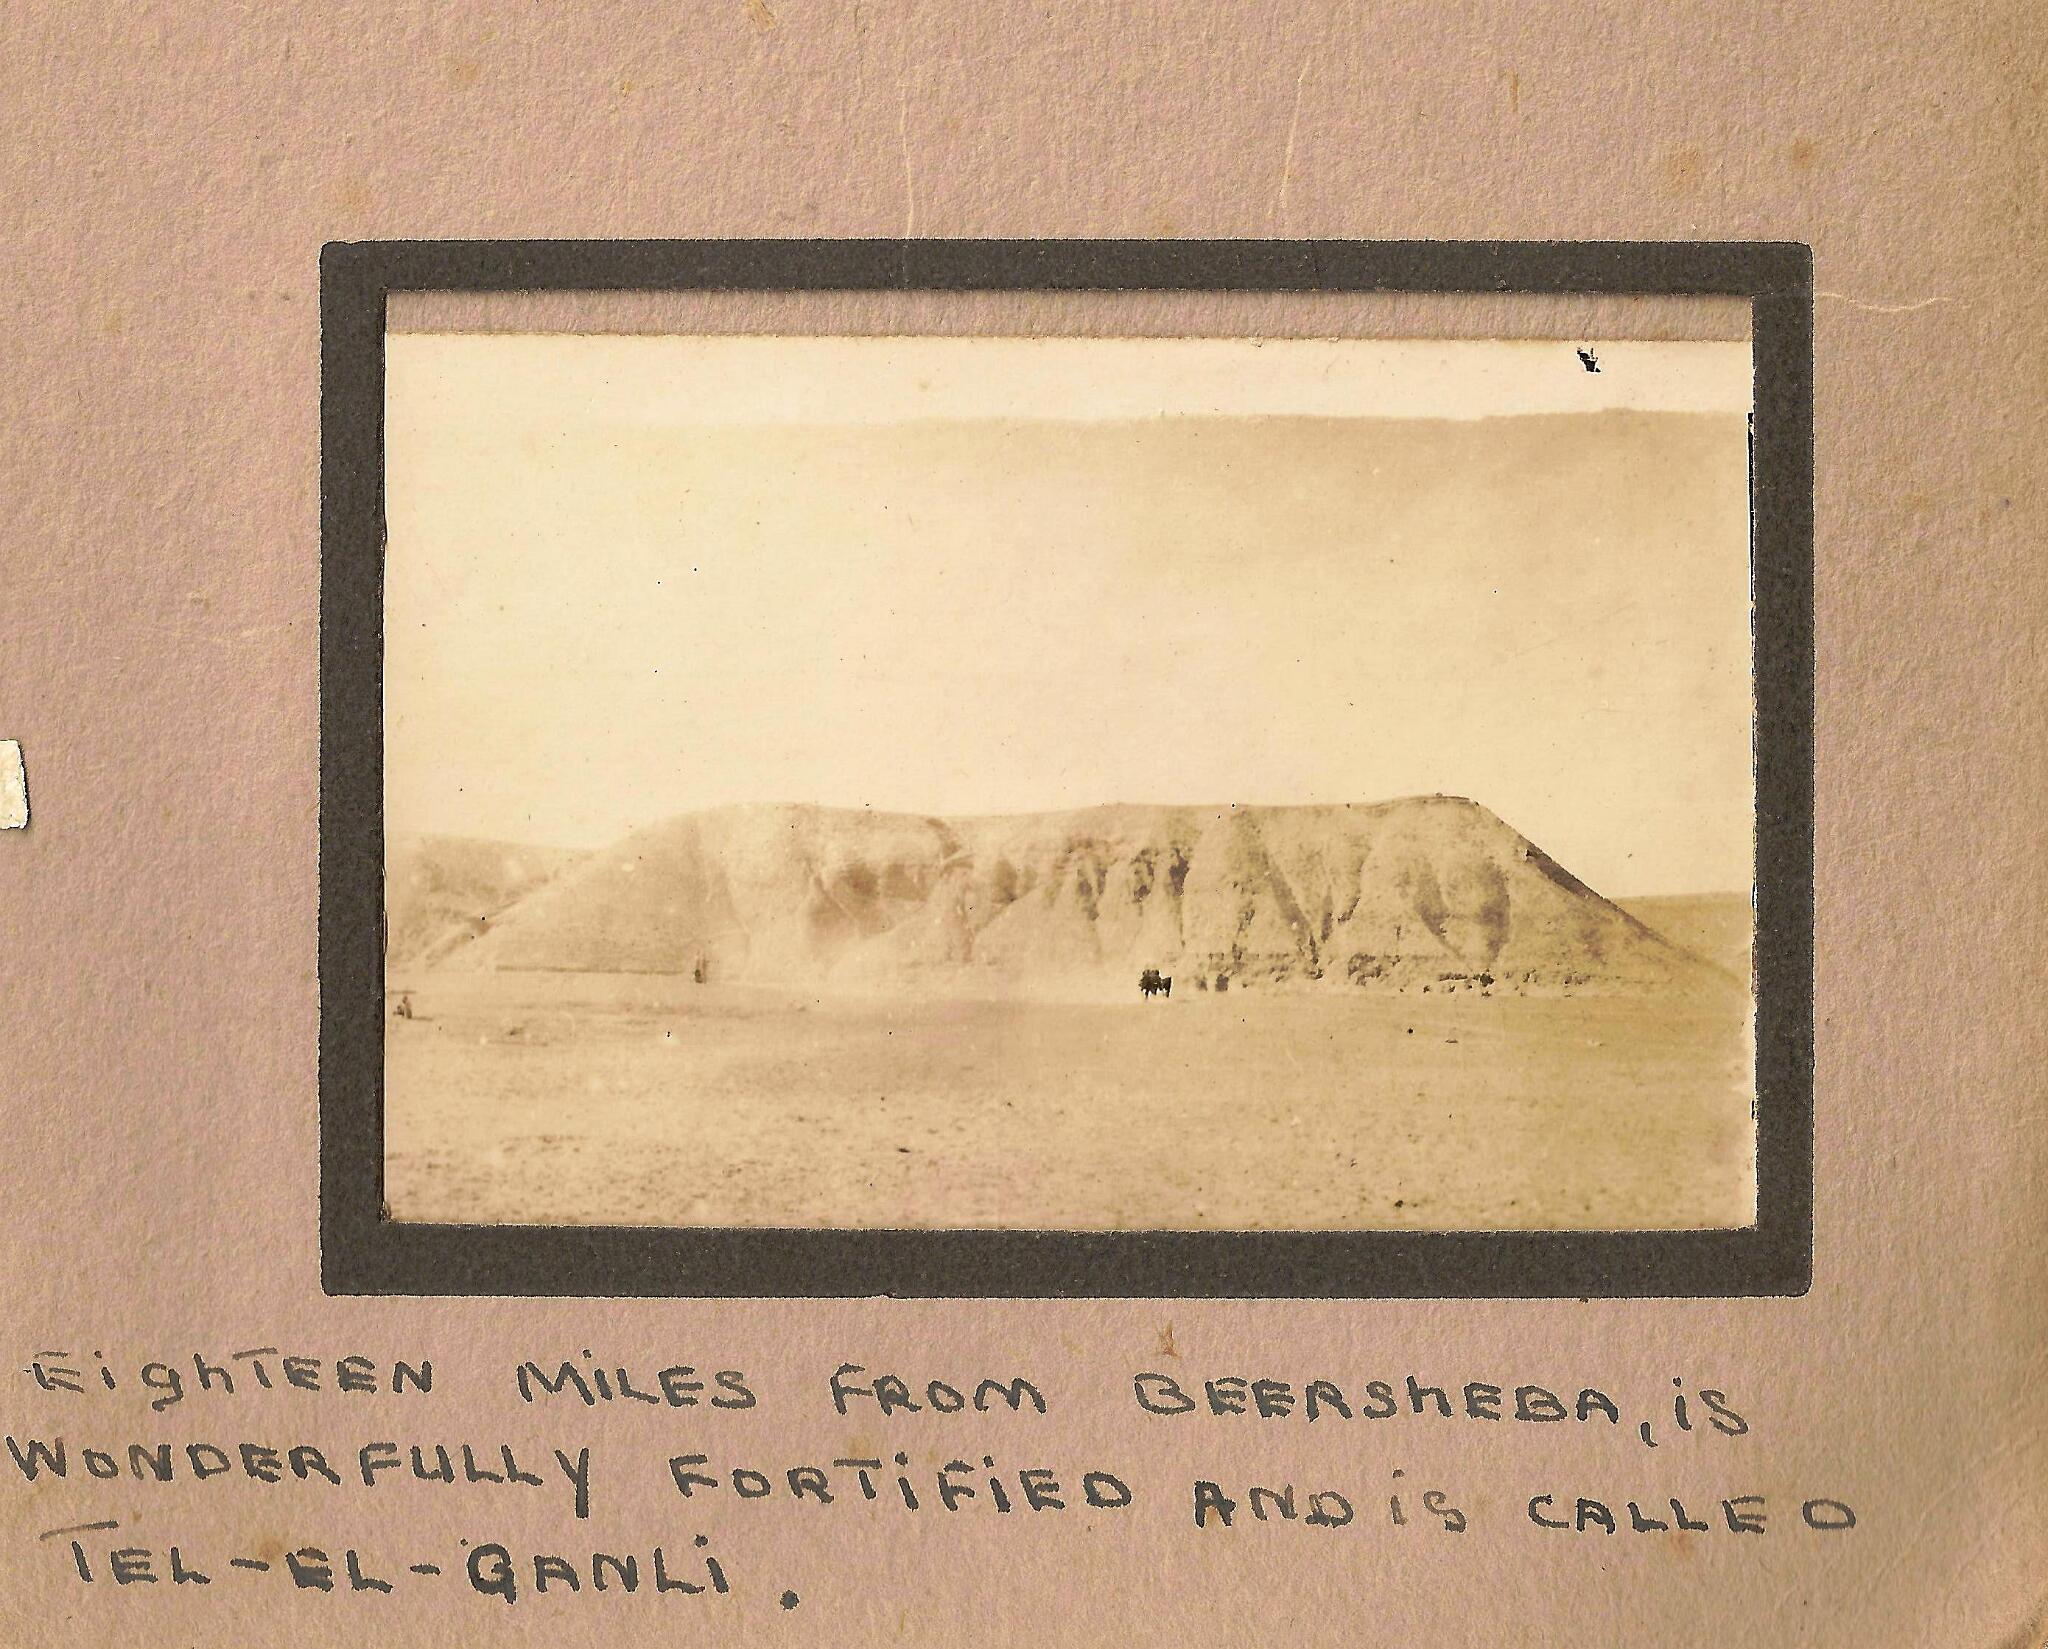 EighTEEN MiLES FROM BEERShEBA, iS
WONDERFULLY FORTiFiED AND iS CALLED
TEL-EL-GANLi.